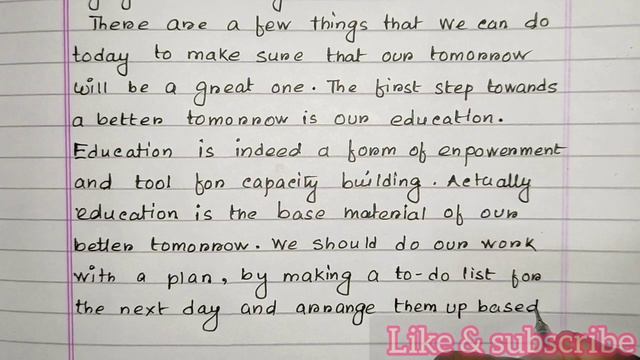 There are a few things that we can do
today to make sure that our tomorrow
will be a great one. The first step towards
a better tomorrow is our education.
Education is indeed a form of enpowerment
and tool for capacity building. Actually
education is the base material of our
better tomorrow. We should do our work
with a plan, by making a to-do list for
the next day and arrange them up based
Like & subscribe